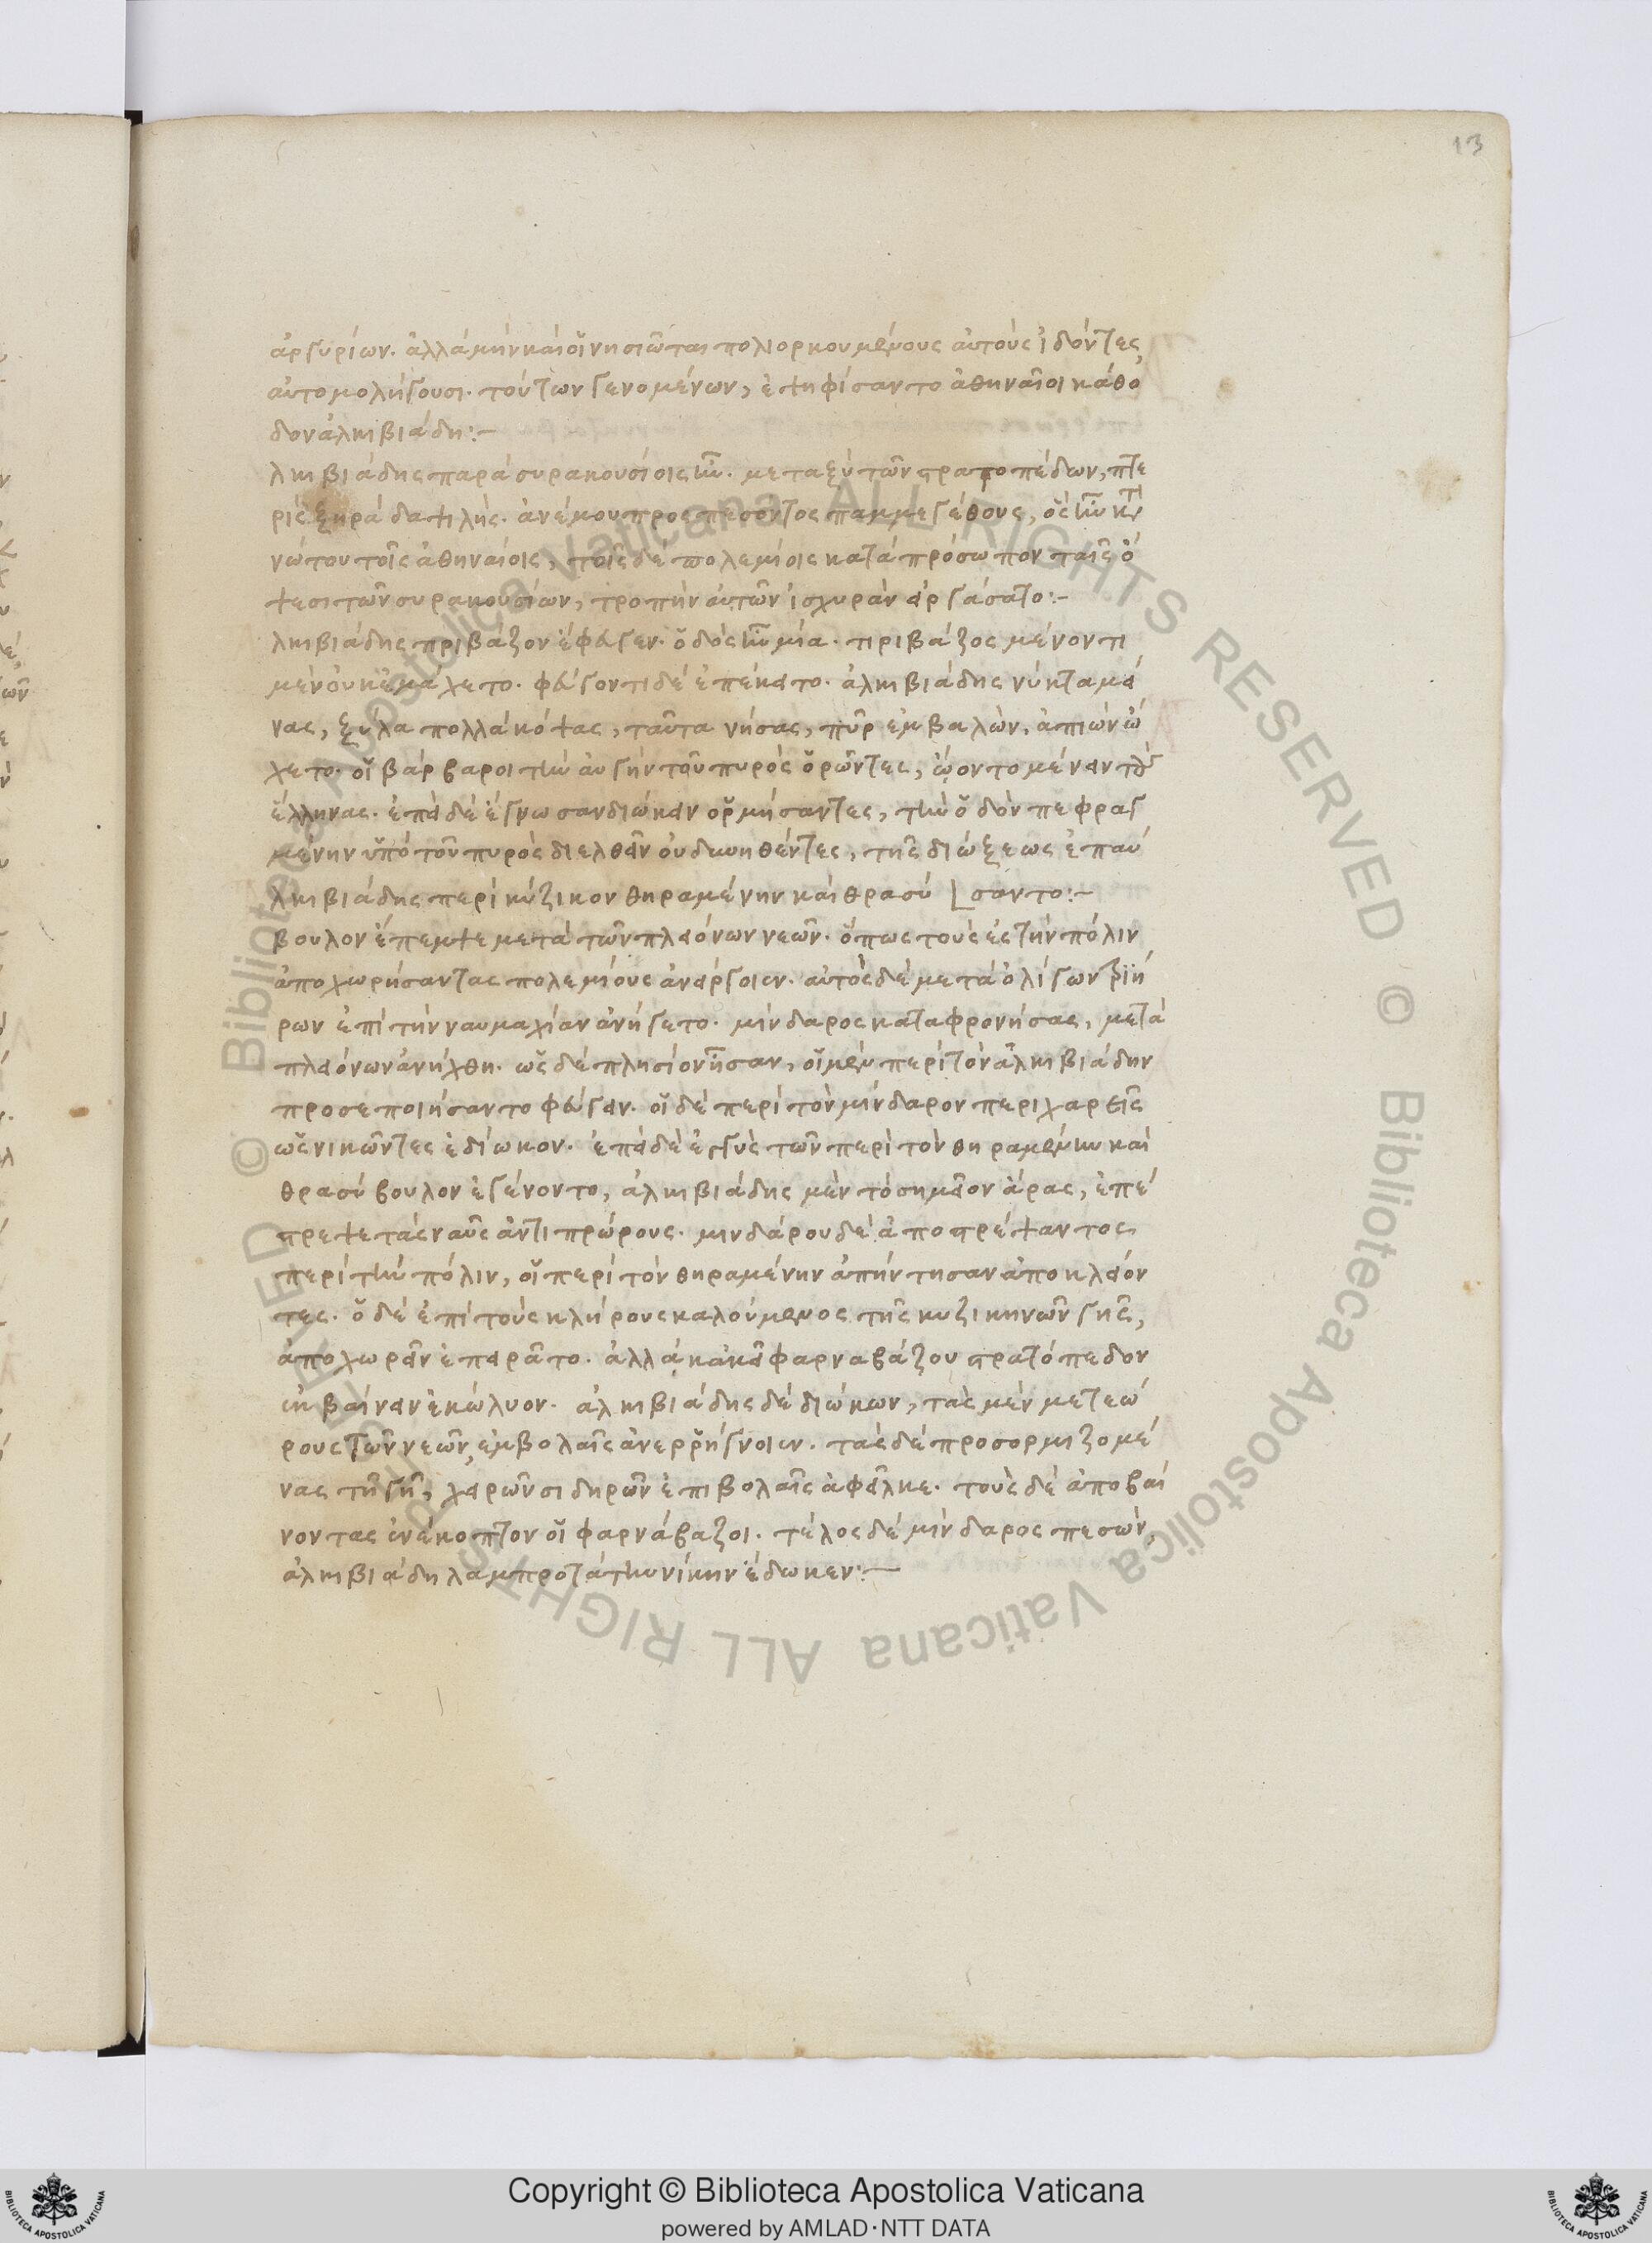 13
ἀργυρίων. ἀλλὰ μὴν καὶ οἱ νησιῶται πολιορκουμένους αὐτοὺς ἰδόντες,
αὐτομολήσουσι. τούτων γενομένων, ἐψηφίσαντο ἀθηναῖοι κάθο
δον ἀλκιβιάδη:-
λκιβιάδης παρὰ συρακουσίοις ἦν. μεταξὺ τῶν στρατοπέδων, πτε
ρὶς ξηρὰ δαψιλής. ἀνέμου προσπεσόντος παμμεγέθους, ὃς ἦν κατὰ
νώτου τοῖς ἀθηναίοις, τοῖς δὲ πολεμίοις κατὰ πρόσωπον ταῖς ὄ
ψεσι τῶν συρακουσίων, τροπὴν αὐτῶν ἰσχυρὰν εἰργάσατο:-
λκιβιάδης τιριβάζον ἔφευγεν. ὁδὸς ἦν μία. τιριβάζος μένοντι
μὲν οὐκ ἐμάχετο. φεύγοντι δὲ ἐπέκειτο. ἀλκιβιάδης νύκτα μεί
νας, ξύλα πολλὰ κόψας, ταῦτα νήσας, πῦρ ἐμβαλὼν, ἀπιὼν ᾤ
χετο. οἱ βάρβαροι τὴν αὐγὴν τοῦ πυρὸς ὁρῶντες, ᾤοντο μένειν τοὺς
ἕλληνας. ἐπεὶ δὲ ἔγνωσαν διώκειν ὁρμήσαντες, τὴν ὁδὸν πεφραγ
μένην ὑπὸ τοῦ πυρὸς διελθεῖν οὐ δυνηθέντες, τῆς διώξεως ἐπαύ
λκιβιάδης περὶ κύζικον θηραμένην καὶ θρασύ ⌊σαντο:-
βουλον ἔπεμψε μετὰ τῶν πλειόνων νεῶν. ὅπως τοὺς ἐς τὴν πόλιν
ἀποχωρήσαντας πολεμίους ἀνείργοιεν. αὐτὸς δὲ μετὰ ὀλίγων τριή
ρων ἐπὶ τὴν ναυμαχίαν ἀνήγετο. μίνδαρος καταφρονήσας, μετὰ
πλειόνων ἀνήχθη. ὡς δὲ πλησίον ἦσαν, οἱ μὲν περὶ τὸν ἀλκιβιάδην
προσεποιήσαντο φεύγειν. οἱ δὲ περὶ τὸν μίνδαρον περιχαρεῖς
ὡς νικῶντες ἐδίωκον. ἐπεὶ δὲ ἐγγὺς τῶν περὶ τὸν θηραμένην καὶ
θρασύβουλον ἐγένοντο, ἀλκιβιάδης μὲν τὸ σημεῖον ἄρας, ἐπέ
στρεψε τὰς ναῦς ἀντιπρώρους. μινδάρου δὲ ἀποστρέψαντος
περὶ τὴν πόλιν, οἱ περὶ τὸν θηραμένην ἀπήντησαν ἀποκλείον
τες. ὁ δὲ ἐπὶ τοὺς κλήρους καλούμενος τῆς κυζικηνῶν γῆς,
ἀποχωρεῖν ἐπειρᾶτο. ἀλλὰ κἀκεῖ φαρναβάζου στρατόπεδον
ἐκβαίνειν ἐκώλυον. ἀλκιβιάδης δὲ διώκων, τὰς μὲν μετεώ
ρους τῶν νεῶν, ἐμβολαῖς ἀνερρήγνοιεν. τὰς δὲ προσορμιζομέ
νας τῆ γῆ, χειρῶν σιδηρῶν ἐπιβολαῖς ἀφεῖλκε. τοὺς δὲ ἀποβαί
νοντας ἐνέκοπτον οἱ φαρνάβαζοι. τέλος δὲ μίνδαρος πεσὼν,
ἀλκιβιάδη λαμπροτάτην νίκην ἔδωκεν:-
© Biblioteca Apostolica Vaticana ALL RIGHTS RESERVED © Biblioteca Apostolica Vaticana ALL RIGHTS RESERVED
Copyright © Biblioteca Apostolica Vaticana
powered by AMLAD·NTT DATA
BIBLIOTECA APOSTOLICA VATICANA
BIBLIOTECA APOSTOLICA VATICANA